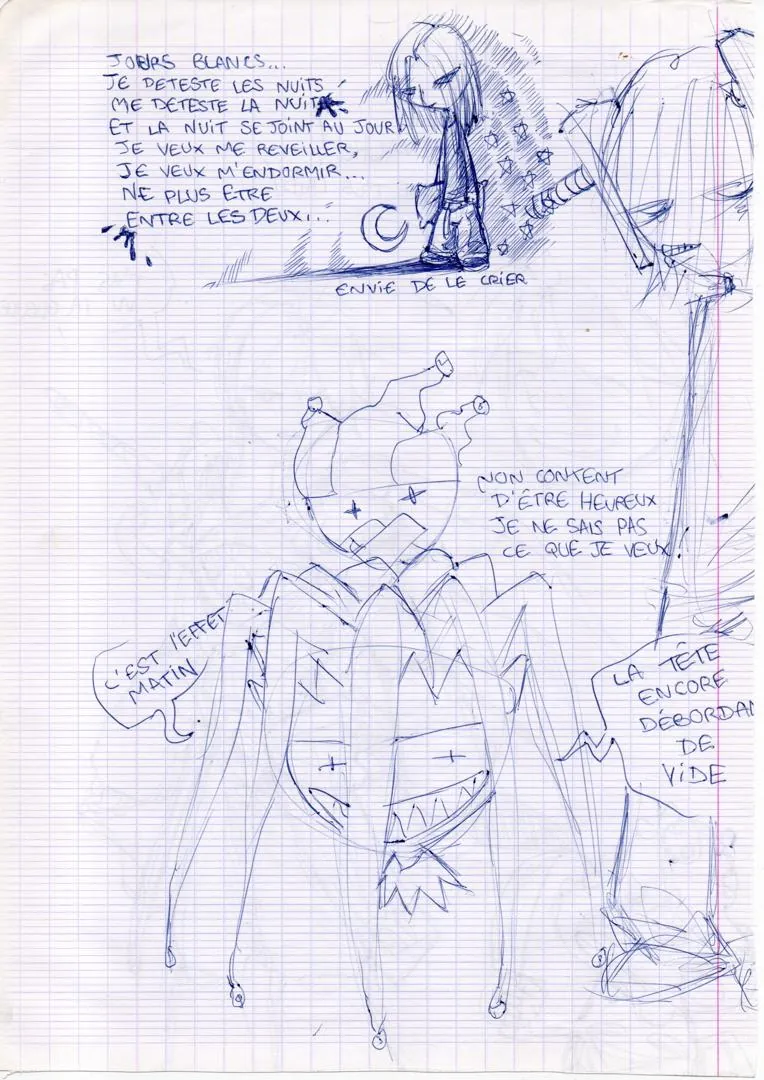 JOURS BLANCS...
JE DETESTE LES NUITS
ME DETESTE LA NUIT
ET LA NUIT SE JOINT AU JOUR
JE VEUX ME REVEILLER,
JE VEUX M'ENDORMIR...
NE PLUS ETRE
ENTRE LES DEUX...
ENVIE DE LE CRIER
NON CONTENT
D'ÊTRE HEUREUX
JE NE SAIS PAS
CE QUE JE VEUX!
C'EST l'EFFET
MATIN
LA TÊTE
ENCORE
DÉBORDAN
DE
VIDE